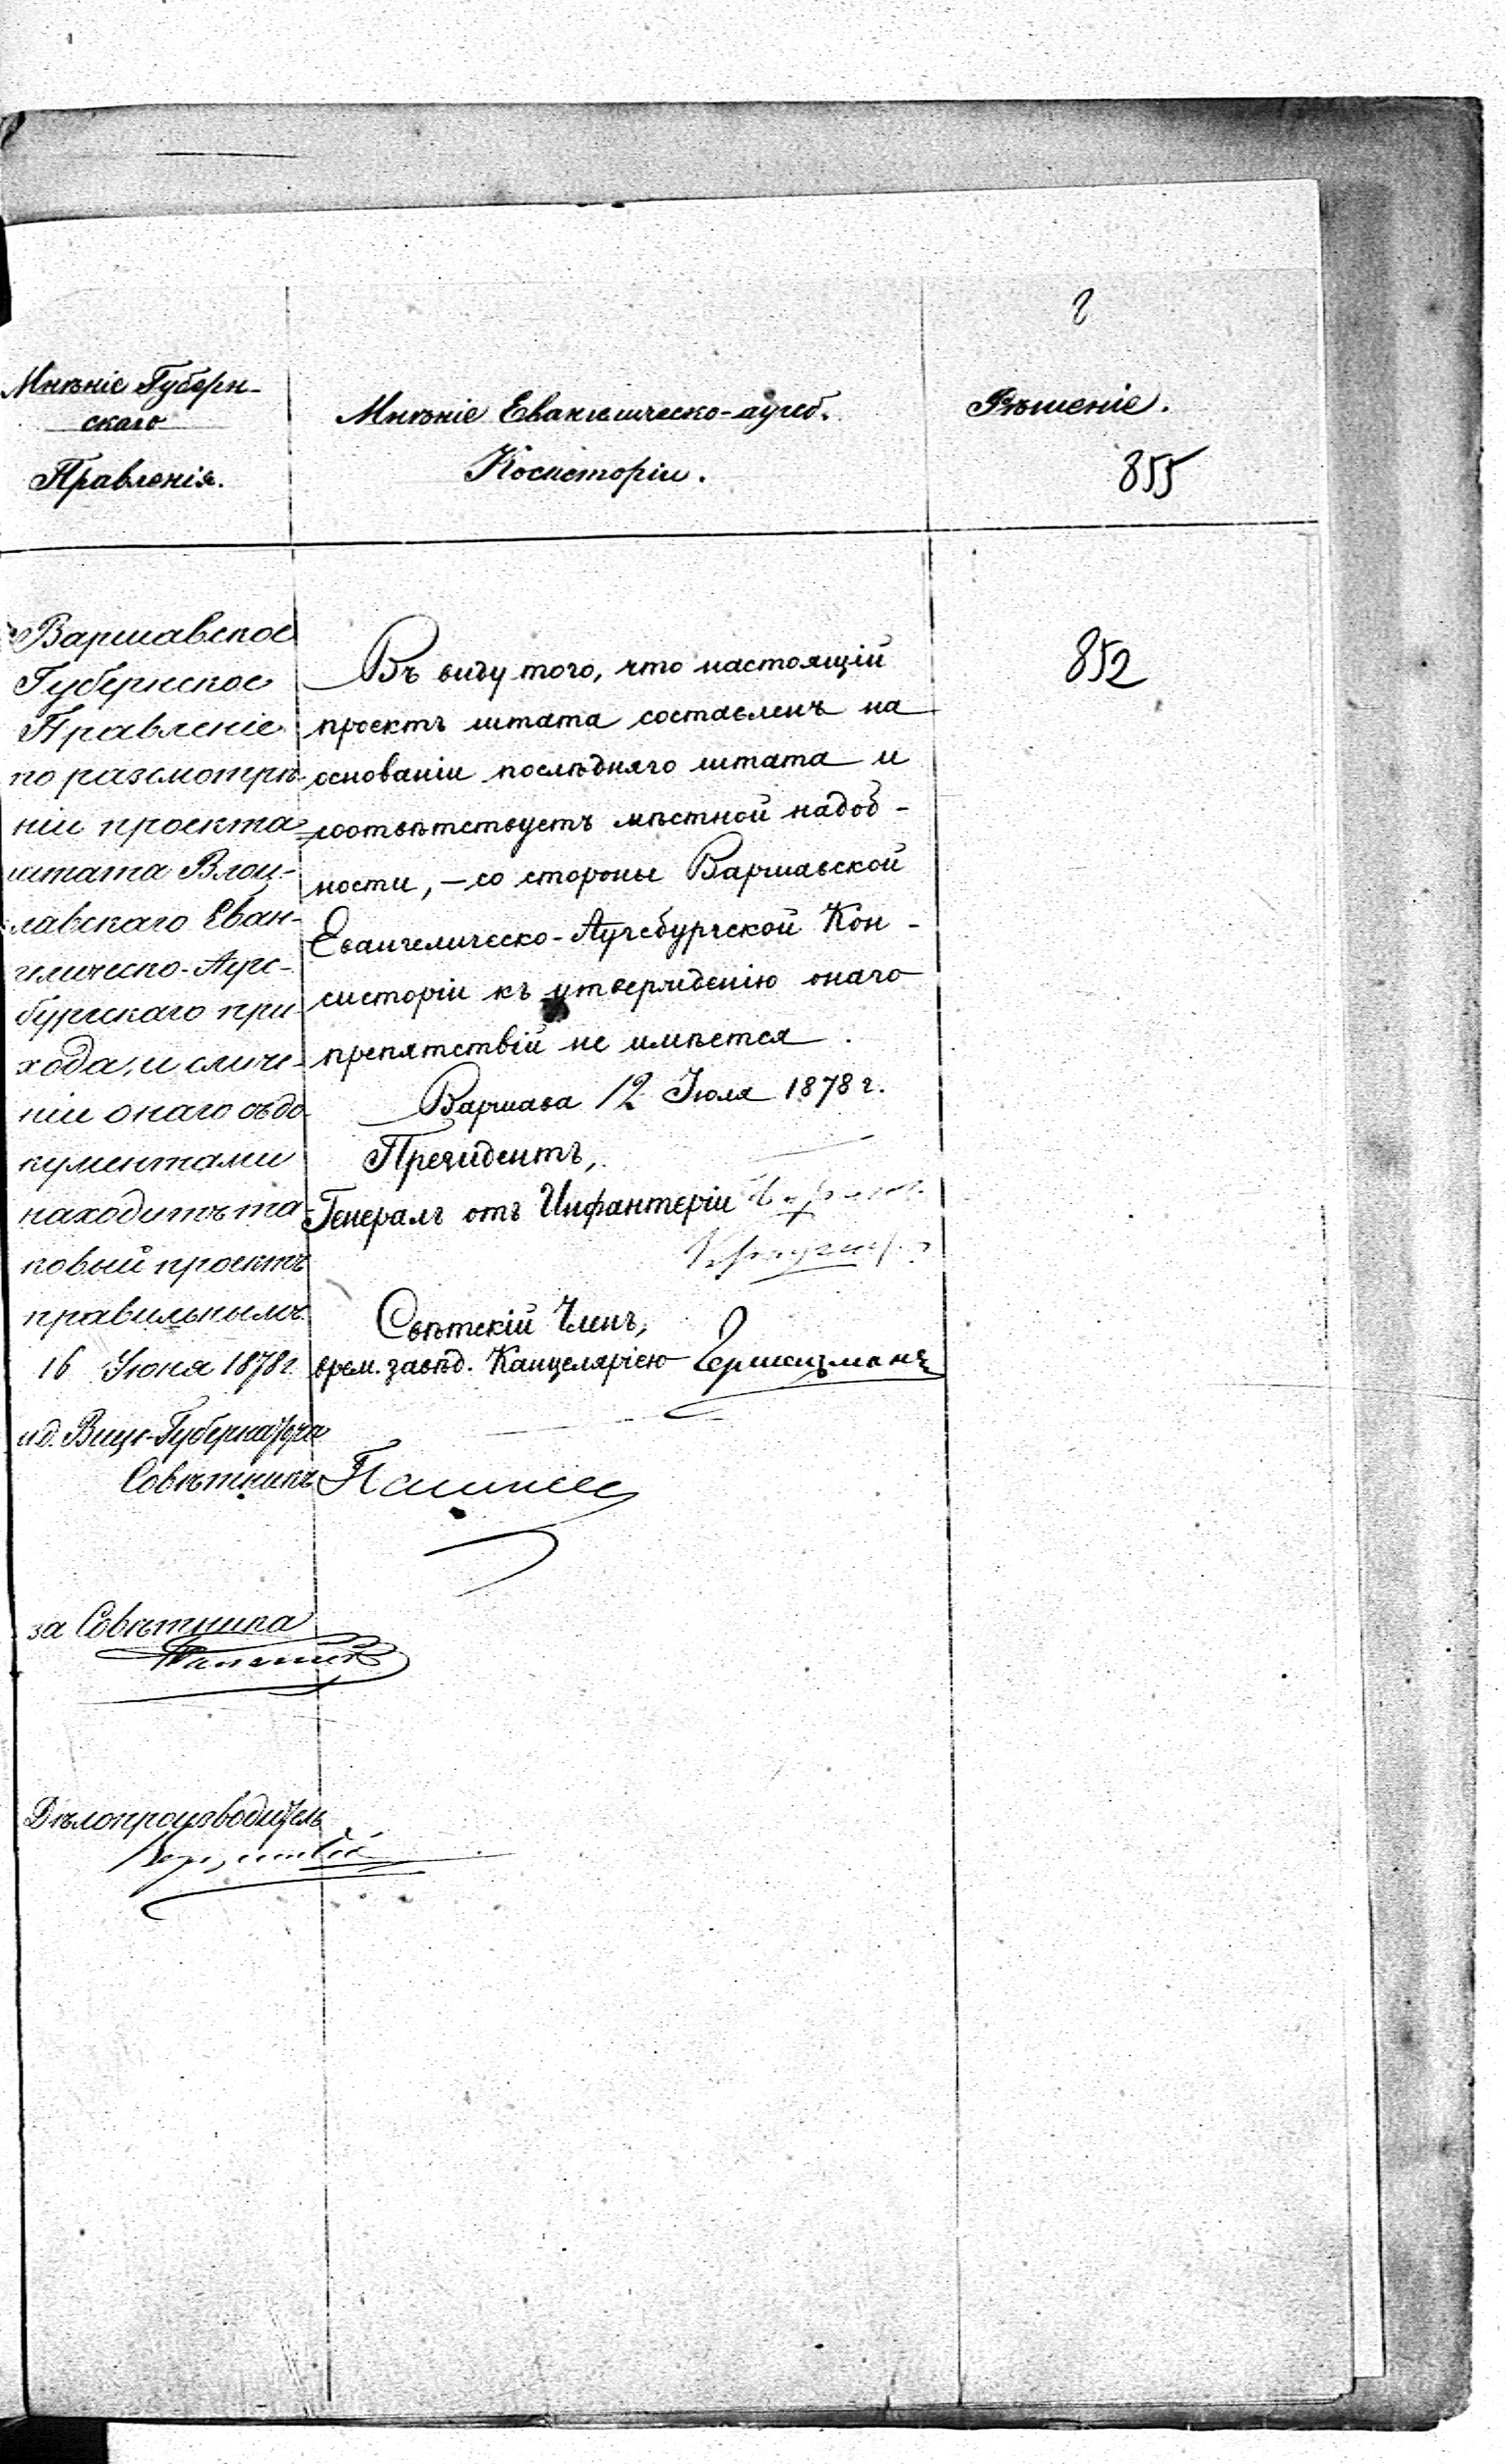 Мнѣніе Губерн-
скаго
Правленія.
Мнѣніе Евангелическо-аугсб.
Косисторіи.
Рѣшеніе.
855
Варшавское
Губернское
Правленіе
по разсмотрѣ-
ніи проекта
штата Влоц-
лавскаго Еван-
гелическо-Аугс-
бургскаго при-
хода, и сличе-
ніи онаго съ до-
кументами
находитъ та-
ковый проектъ
правильнымъ.
16 Юня 1878 г.
и.д. Вице-Губернатора
Совѣтникъ
за Совѣтника
Дѣлопроизводитель
Въ виду того, что настоящій
проектъ штата составленъ на
основаніи послѣдняго штата и
соотвѣтствуетъ мѣстной надоб-
ности, — со стороны Варшавской
Евангелическо-Аугсбургской Кон-
систоріи къ утвержденію онаго
препятствій не имѣется.
Варшава 12 Іюля 1878 г.
Президентъ,
Генералъ отъ Инфантеріи
Свѣтскій Членъ,
врем. завѣд. Канцеляріею
852